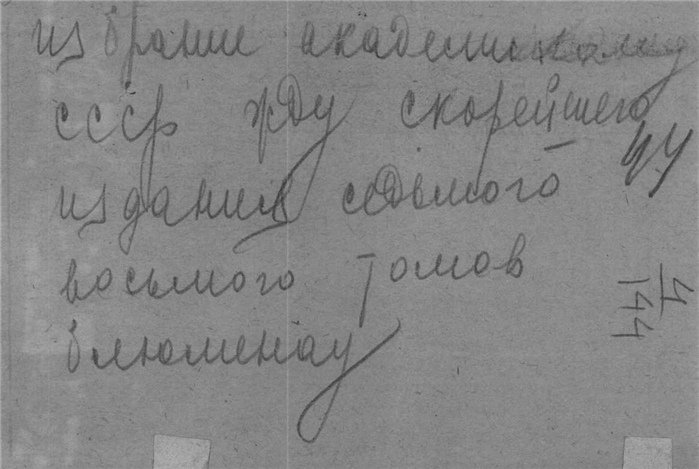 избрание академиком
ссср жду скорейшего
издания седьмого
восьмого томов
блюменау
44
4
144